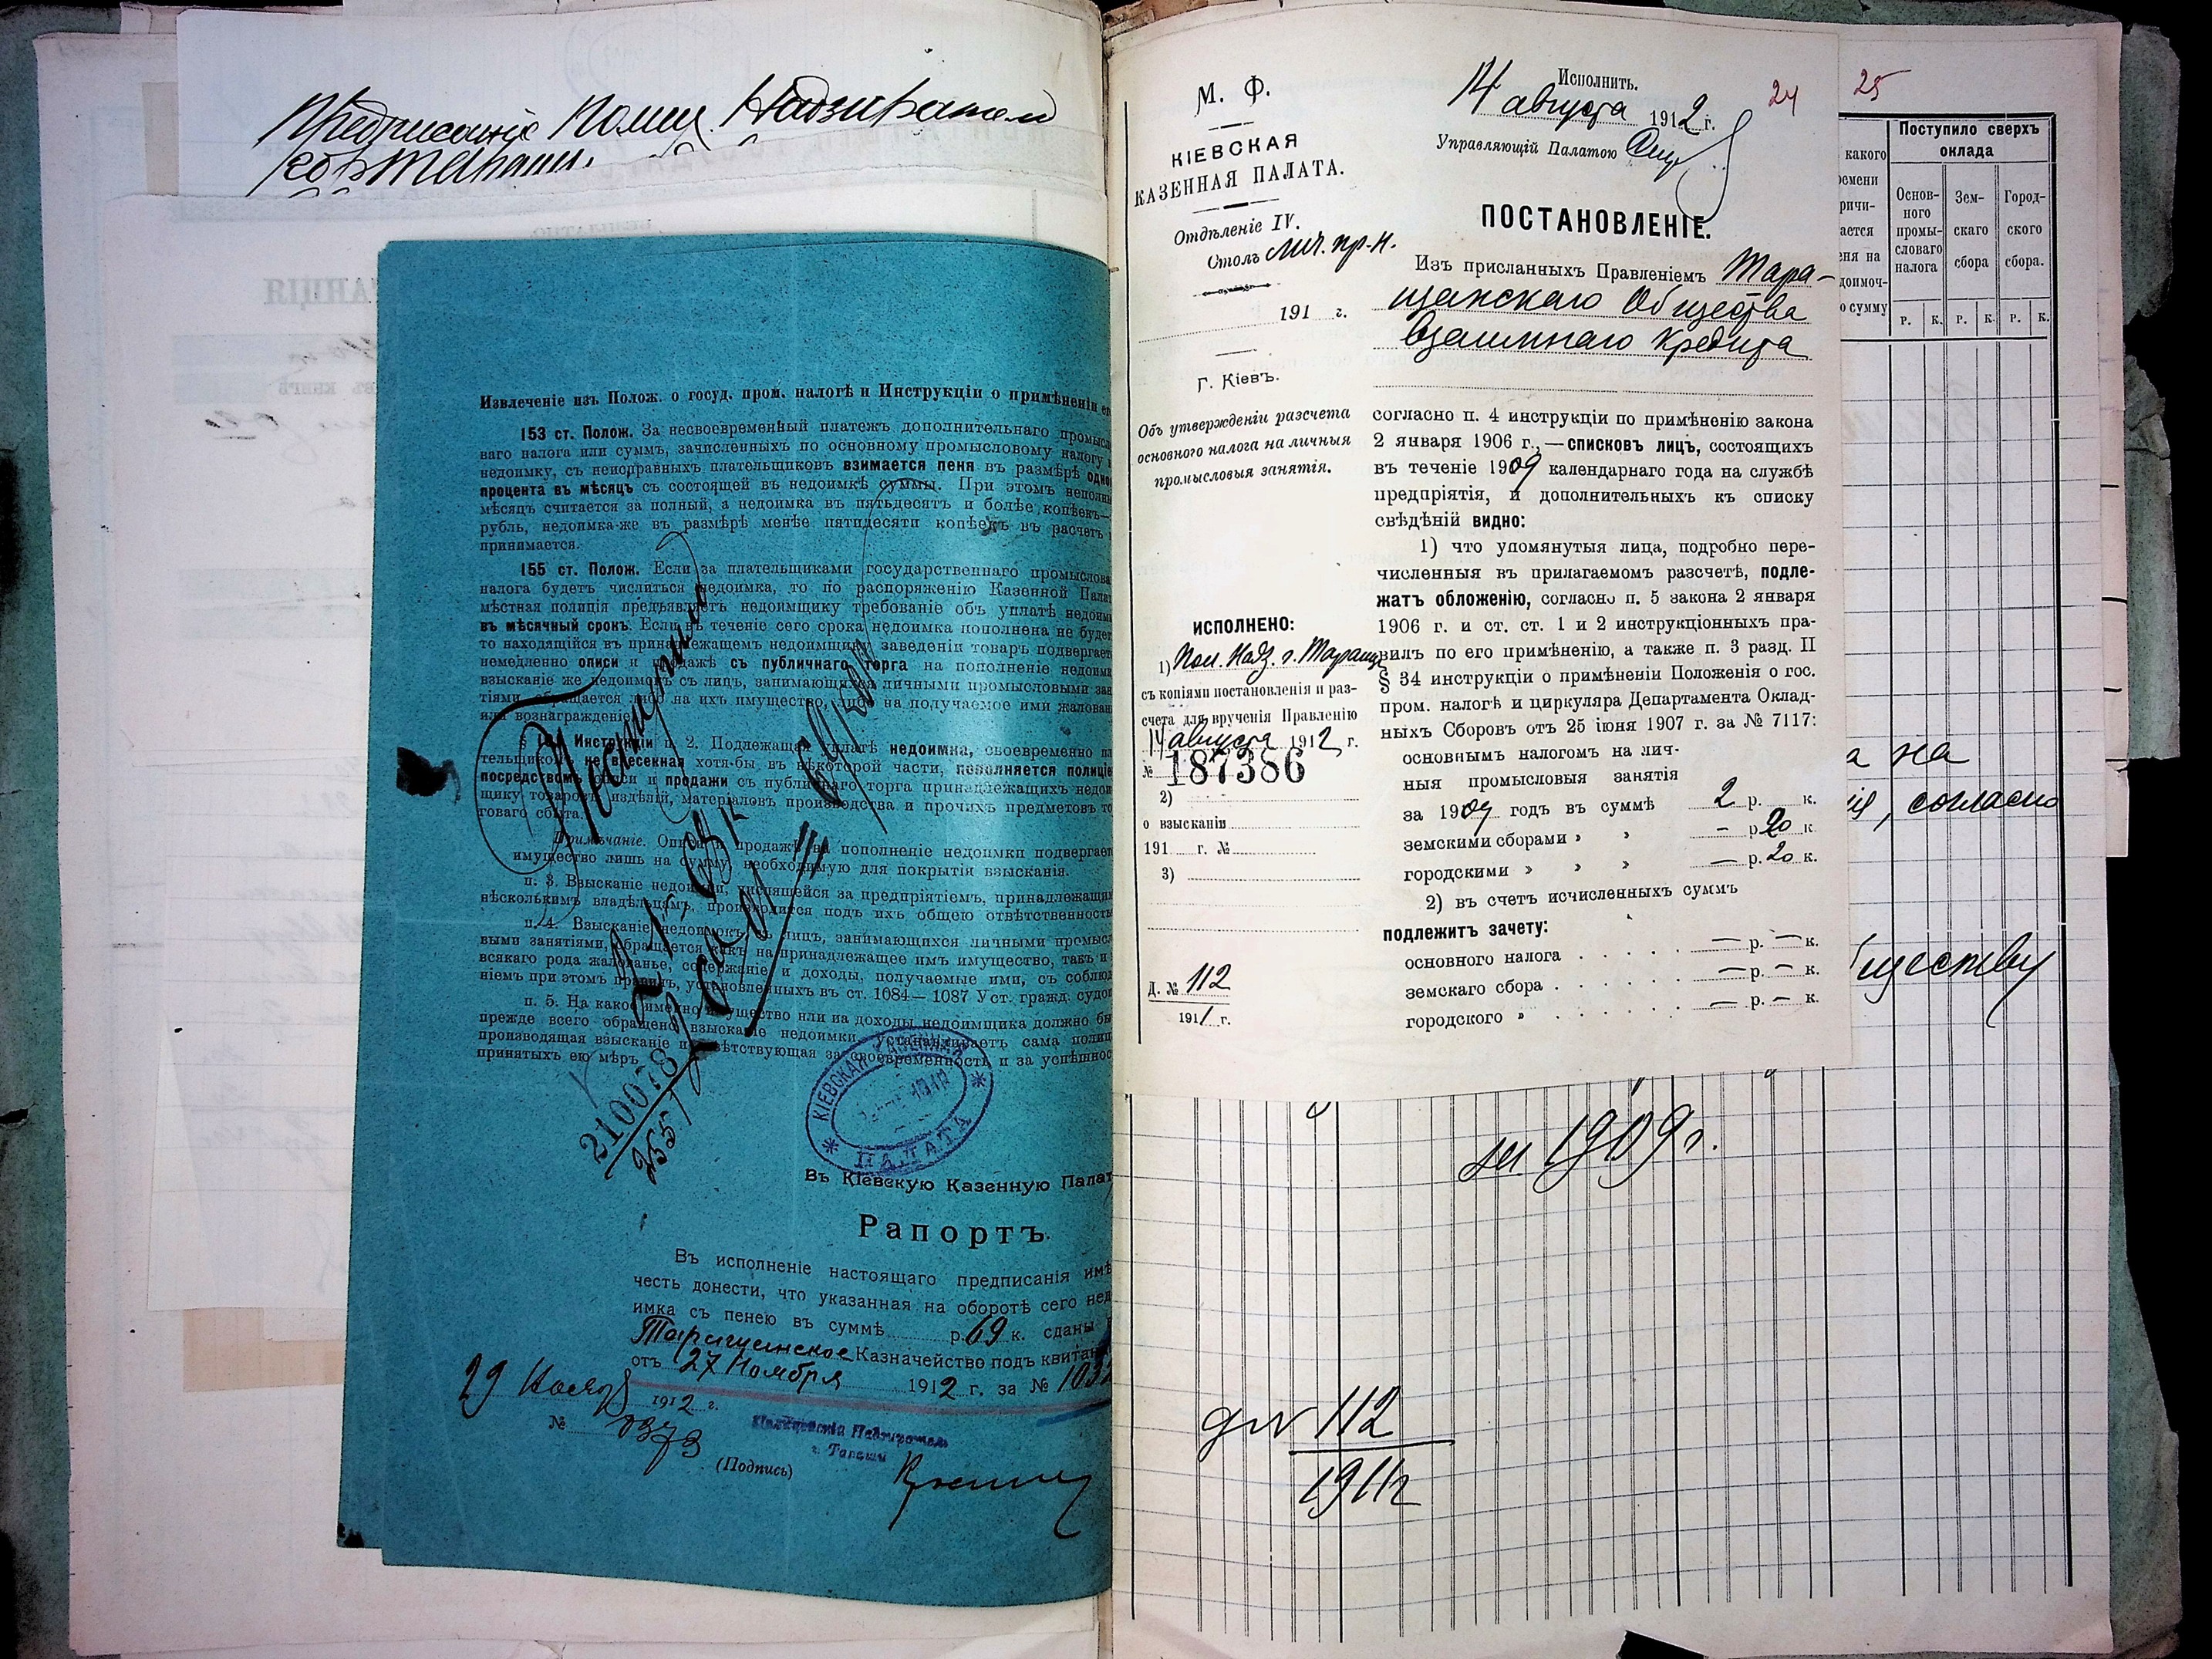 Предписаніе Помощ. Надзирателя
гор. Таращи.
Извлеченіе изъ Полож. о госуд. пром. налогѣ и Инструкціи о примѣненіи ег
153 ст. Полож. За несвоевременный платежъ дополнительнаго промысло
ваго налога или суммъ, зачисленныхъ по основному промысловому налогу
недоимку, съ неисправныхъ плательщиковъ взимается пеня въ размѣрѣ одно
процента въ мѣсяцъ съ состоящей въ недоимкѣ суммы. При этомъ неполны
мѣсяцъ считается за полный, а недоимка въ пятьдесятъ и болѣе копѣекъ—
рубль, недоимка-же въ размѣрѣ менѣе пятидесяти копѣекъ въ расчетъ
принимается.
155 ст. Полож. Если за плательщиками государственнаго промыслова
налога будетъ числиться недоимка, то по распоряженію Казенной Палат
мѣстная полиція предъявляетъ недоимщику требованіе объ уплатѣ недоим
въ мѣсячный срокъ. Если въ теченіе сего срока недоимка пополнена не будет
то находящійся въ принадлежащемъ недоимщику заведеніи товаръ подвергает
немедленно описи и продажѣ съ публичнаго торга на пополненіе недоим
взысканіе же недоимокъ съ лицъ, занимающихся личными промысловыми зан
тіями, обращается либо на ихъ имущество, либо на получаемое ими жалован
или вознагражденіе.
Инструкціи п. 2. Подлежащая уплатѣ недоимка, своевременно пл
тельщикомъ не внесенная хотя-бы въ нѣкоторой части, пополняется полиціе
посредствомъ описи и продажи съ публичнаго торга принадлежащихъ недои
щику товаровъ, издѣлій, матеріаловъ производства и прочихъ предметовъ то
говаго сбыта.
Примѣчаніе. Описи и продажѣ на пополненіе недоимки подвергает
имущество лишь на сумму, необходимую для покрытія взысканія.
п. 3. Взысканіе недоимки, числящейся за предпріятіемъ, принадлежащим
нѣсколькимъ владѣльцамъ, производится подъ ихъ общею отвѣтственность
п. 4. Взысканіе недоимокъ съ лицъ, занимающихся личными промысл
выми занятіями, обращается какъ на принадлежащее имъ имущество, такъ и
всякаго рода жалованье, содержаніе и доходы, получаемые ими, съ соблюд
ніемъ при этомъ правилъ, установленныхъ въ ст. 1084—1087 Уст. гражд. судоп
п. 5. На какое именно имущество или на доходы недоимщика должно бы
прежде всего обращено взысканіе недоимки устанавливаетъ сама полиц
производящая взысканіе и отвѣтствующая за своевременность и за успѣшнос
принятыхъ ею мѣръ.
210078
2551
КІЕВСКАЯ КАЗЕННАЯ
ПАЛАТА
Въ Кіевскую Казенную Палат
Рапортъ.
Въ исполненіе настоящаго предписанія имѣ
честь донести, что указанная на оборотѣ сего нед
имка съ пенею въ суммѣ р. 69 к. сданы
Таращанское Казначейство подъ квитан
отъ 27 Ноября 1912 г. за № 103
29 Ноября 1912 г.
№ 0373
г. Таращи
(Подпись)
М. Ф.
КІЕВСКАЯ
КАЗЕННАЯ ПАЛАТА.
Отдѣленіе IV.
Столъ лич. пр. н.
191 г.
Г. Кіевъ.
Объ утвержденіи разсчета
основного налога на личныя
промысловыя занятія.
ИСПОЛНЕНО:
1) Пом. Надз. г. Таращи
съ копіями постановленія и раз-
счета для врученія Правленію
14 августа 1912 г.
№ 187386
2)
о взысканіи
191 г. №
3)
Д. № 112
1911 г.
Исполнить.
14 августа 1912 г.
24
Управляющій Палатою
ПОСТАНОВЛЕНІЕ.
Изъ присланныхъ Правленіемъ Тара-
щанскаго Общества
Взаимнаго Кредита
согласно п. 4 инструкціи по примѣненію закона
2 января 1906 г.,—списковъ лицъ, состоящихъ
въ теченіе 1909 календарнаго года на службѣ
предпріятія, и дополнительныхъ къ списку
свѣдѣній видно:
1) что упомянутыя лица, подробно пере-
численныя въ прилагаемомъ разсчетѣ, подле-
жатъ обложенію, согласно п. 5 закона 2 января
1906 г. и ст. ст. 1 и 2 инструкціонныхъ пра-
вилъ по его примѣненію, а также п. 3 разд. II
§ 34 инструкціи о примѣненіи Положенія о гос.
пром. налогѣ и циркуляра Департамента Оклад-
ныхъ Сборовъ отъ 25 іюня 1907 г. за № 7117:
основнымъ налогомъ на лич-
ныя промысловыя занятія
за 1909 годъ въ суммѣ 2 р. к.
земскими сборами » » — р. 20 к.
городскими » » » — р. 20 к.
2) въ счетъ исчисленныхъ суммъ
подлежитъ зачету:
основного налога — р. — к.
земскаго сбора — р. — к.
городского » — р. — к.
25
какого
ремени
ричи-
ается
еня на
доимоч-
ю сумму
Поступило сверхъ
оклада
Основ-
ного
промы-
словаго
налога
Зем-
скаго
сбора
Город-
ского
сбора.
р. к. р. к. р. к.
а на
ія, согласно
бществу
за 1909 г.
112
1911 г.